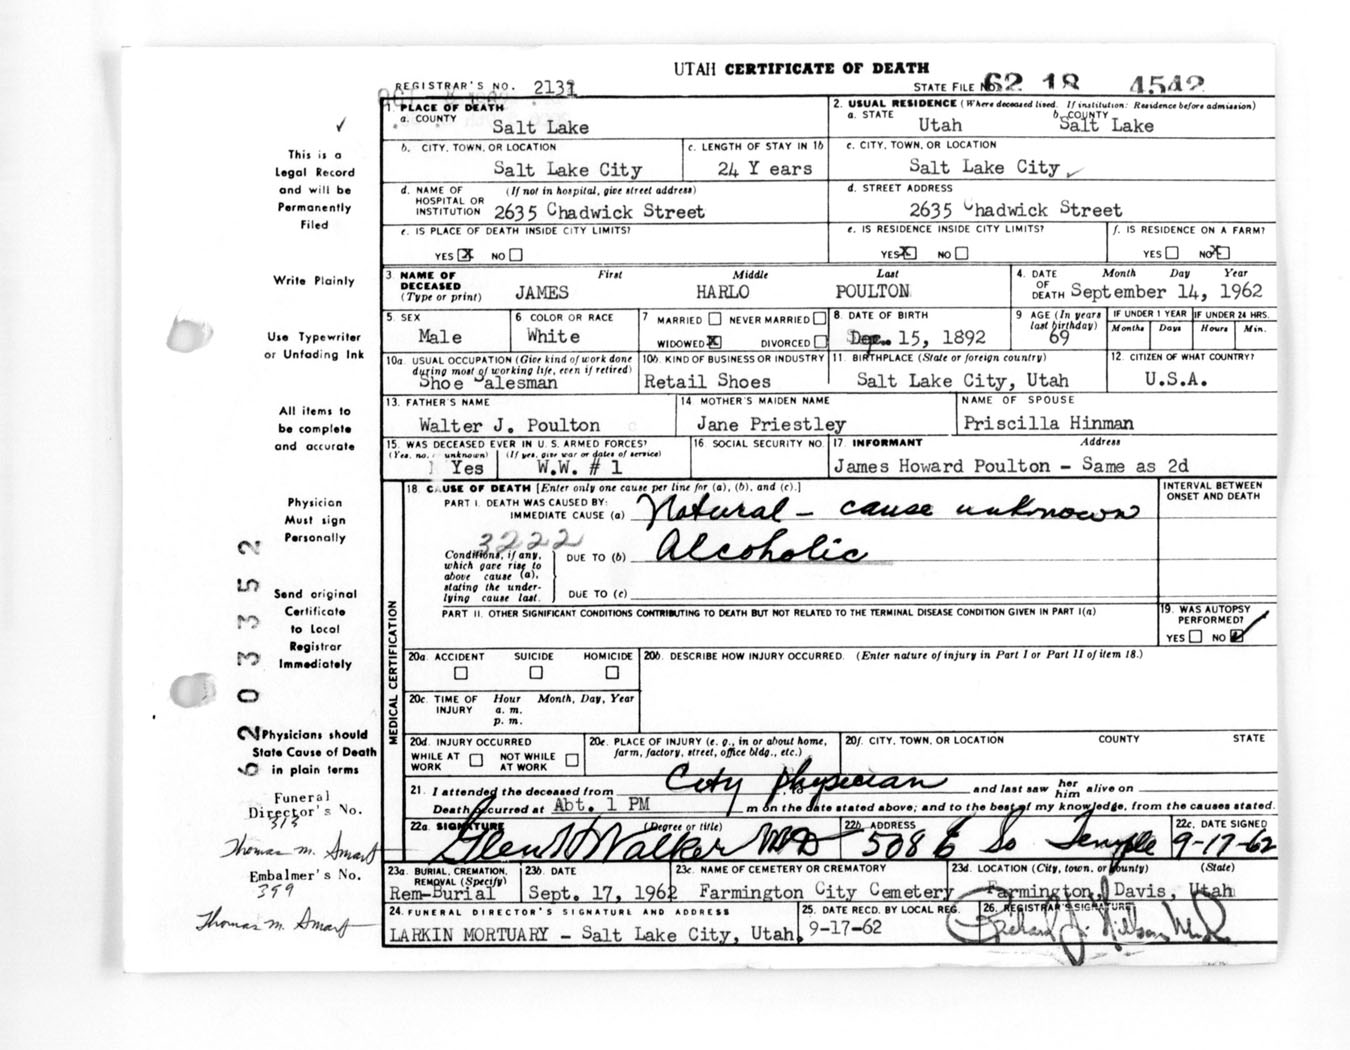 UTAH CERTIFICATE OF DEATH
REGISTRAR'S NO. 2131
STATE FILE NO. 62 18 4542
1. PLACE OF DEATH
a. COUNTY Salt Lake
2. USUAL RESIDENCE (Where deceased lived. If institution: Residence before admission)
a. STATE Utah b. COUNTY Salt Lake
b. CITY, TOWN, OR LOCATION Salt Lake City
c. LENGTH OF STAY IN 1b 24 Years
c. CITY, TOWN, OR LOCATION Salt Lake City
d. NAME OF HOSPITAL OR INSTITUTION (If not in hospital, give street address) 2635 Chadwick Street
d. STREET ADDRESS 2635 Chadwick Street
e. IS PLACE OF DEATH INSIDE CITY LIMITS?
YES X NO
e. IS RESIDENCE INSIDE CITY LIMITS?
YES X NO
f. IS RESIDENCE ON A FARM?
YES NO X
3 NAME OF DECEASED (Type or print) First Middle Last
JAMES HARLO POULTON
4. DATE OF DEATH Month Day Year
September 14, 1962
5. SEX Male
6 COLOR OR RACE White
7 MARRIED NEVER MARRIED
WIDOWED X DIVORCED
8. DATE OF BIRTH 15, 1892
9 AGE (In years last birthday) 69
IF UNDER 1 YEAR Months Days
IF UNDER 24 HRS. Hours Min.
10a. USUAL OCCUPATION (Give kind of work done during most of working life, even if retired)
Shoe Salesman
10b. KIND OF BUSINESS OR INDUSTRY
Retail Shoes
11. BIRTHPLACE (State or foreign country)
Salt Lake City, Utah
12. CITIZEN OF WHAT COUNTRY?
U.S.A.
13. FATHER'S NAME
Walter J. Poulton
14. MOTHER'S MAIDEN NAME
Jane Priestley
NAME OF SPOUSE
Priscilla Hinman
15. WAS DECEASED EVER IN U. S. ARMED FORCES?
(Yes, no, unknown) (If yes, give war or dates of service)
Yes W.W. # 1
16 SOCIAL SECURITY NO.
17. INFORMANT Address
James Howard Poulton - Same as 2d
18. CAUSE OF DEATH [Enter only one cause per line for (a), (b), and (c).]
INTERVAL BETWEEN ONSET AND DEATH
PART I. DEATH WAS CAUSED BY:
IMMEDIATE CAUSE (a) Natural - cause unknown
3222
Conditions, if any, which gave rise to above cause (a), stating the underlying cause last.
DUE TO (b) Alcoholic
DUE TO (c)
PART II. OTHER SIGNIFICANT CONDITIONS CONTRIBUTING TO DEATH BUT NOT RELATED TO THE TERMINAL DISEASE CONDITION GIVEN IN PART I(a)
19. WAS AUTOPSY PERFORMED?
YES NO
MEDICAL CERTIFICATION
20a. ACCIDENT SUICIDE HOMICIDE
20b. DESCRIBE HOW INJURY OCCURRED. (Enter nature of injury in Part I or Part II of item 18.)
20c. TIME OF INJURY Hour Month, Day, Year
a. m.
p. m.
20d. INJURY OCCURRED
WHILE AT WORK NOT WHILE AT WORK
20e. PLACE OF INJURY (e. g., in or about home, farm, factory, street, office bldg., etc.)
20f. CITY, TOWN, OR LOCATION COUNTY STATE
City physician
21. I attended the deceased from and last saw her him alive on
Death occurred at Abt. 1 PM m on the date stated above; and to the best of my knowledge, from the causes stated.
22a. SIGNATURE (Degree or title)
Glen H Walker MD
22b. ADDRESS
508 E So Temple
22c. DATE SIGNED
9-17-62
23a. BURIAL, CREMATION, REMOVAL (Specify)
Rem-Burial
23b. DATE
Sept. 17, 1962
23c. NAME OF CEMETERY OR CREMATORY
Farmington City Cemetery
23d. LOCATION (City, town, or county) (State)
Farmington, Davis, Utah
24. FUNERAL DIRECTOR'S SIGNATURE AND ADDRESS
LARKIN MORTUARY - Salt Lake City, Utah
25. DATE RECD. BY LOCAL REG.
9-17-62
26. REGISTRAR'S SIGNATURE
This is a
Legal Record
and will be
Permanently
Filed
Write Plainly
Use Typewriter
or Unfading Ink
All items to
be complete
and accurate
Physician
Must sign
Personally
Send original
Certificate
to Local
Registrar
Immediately
Physicians should
State Cause of Death
in plain terms
Funeral
Director's No.
313
Thomas M. Smart
Embalmer's No.
399
Thomas M. Smart